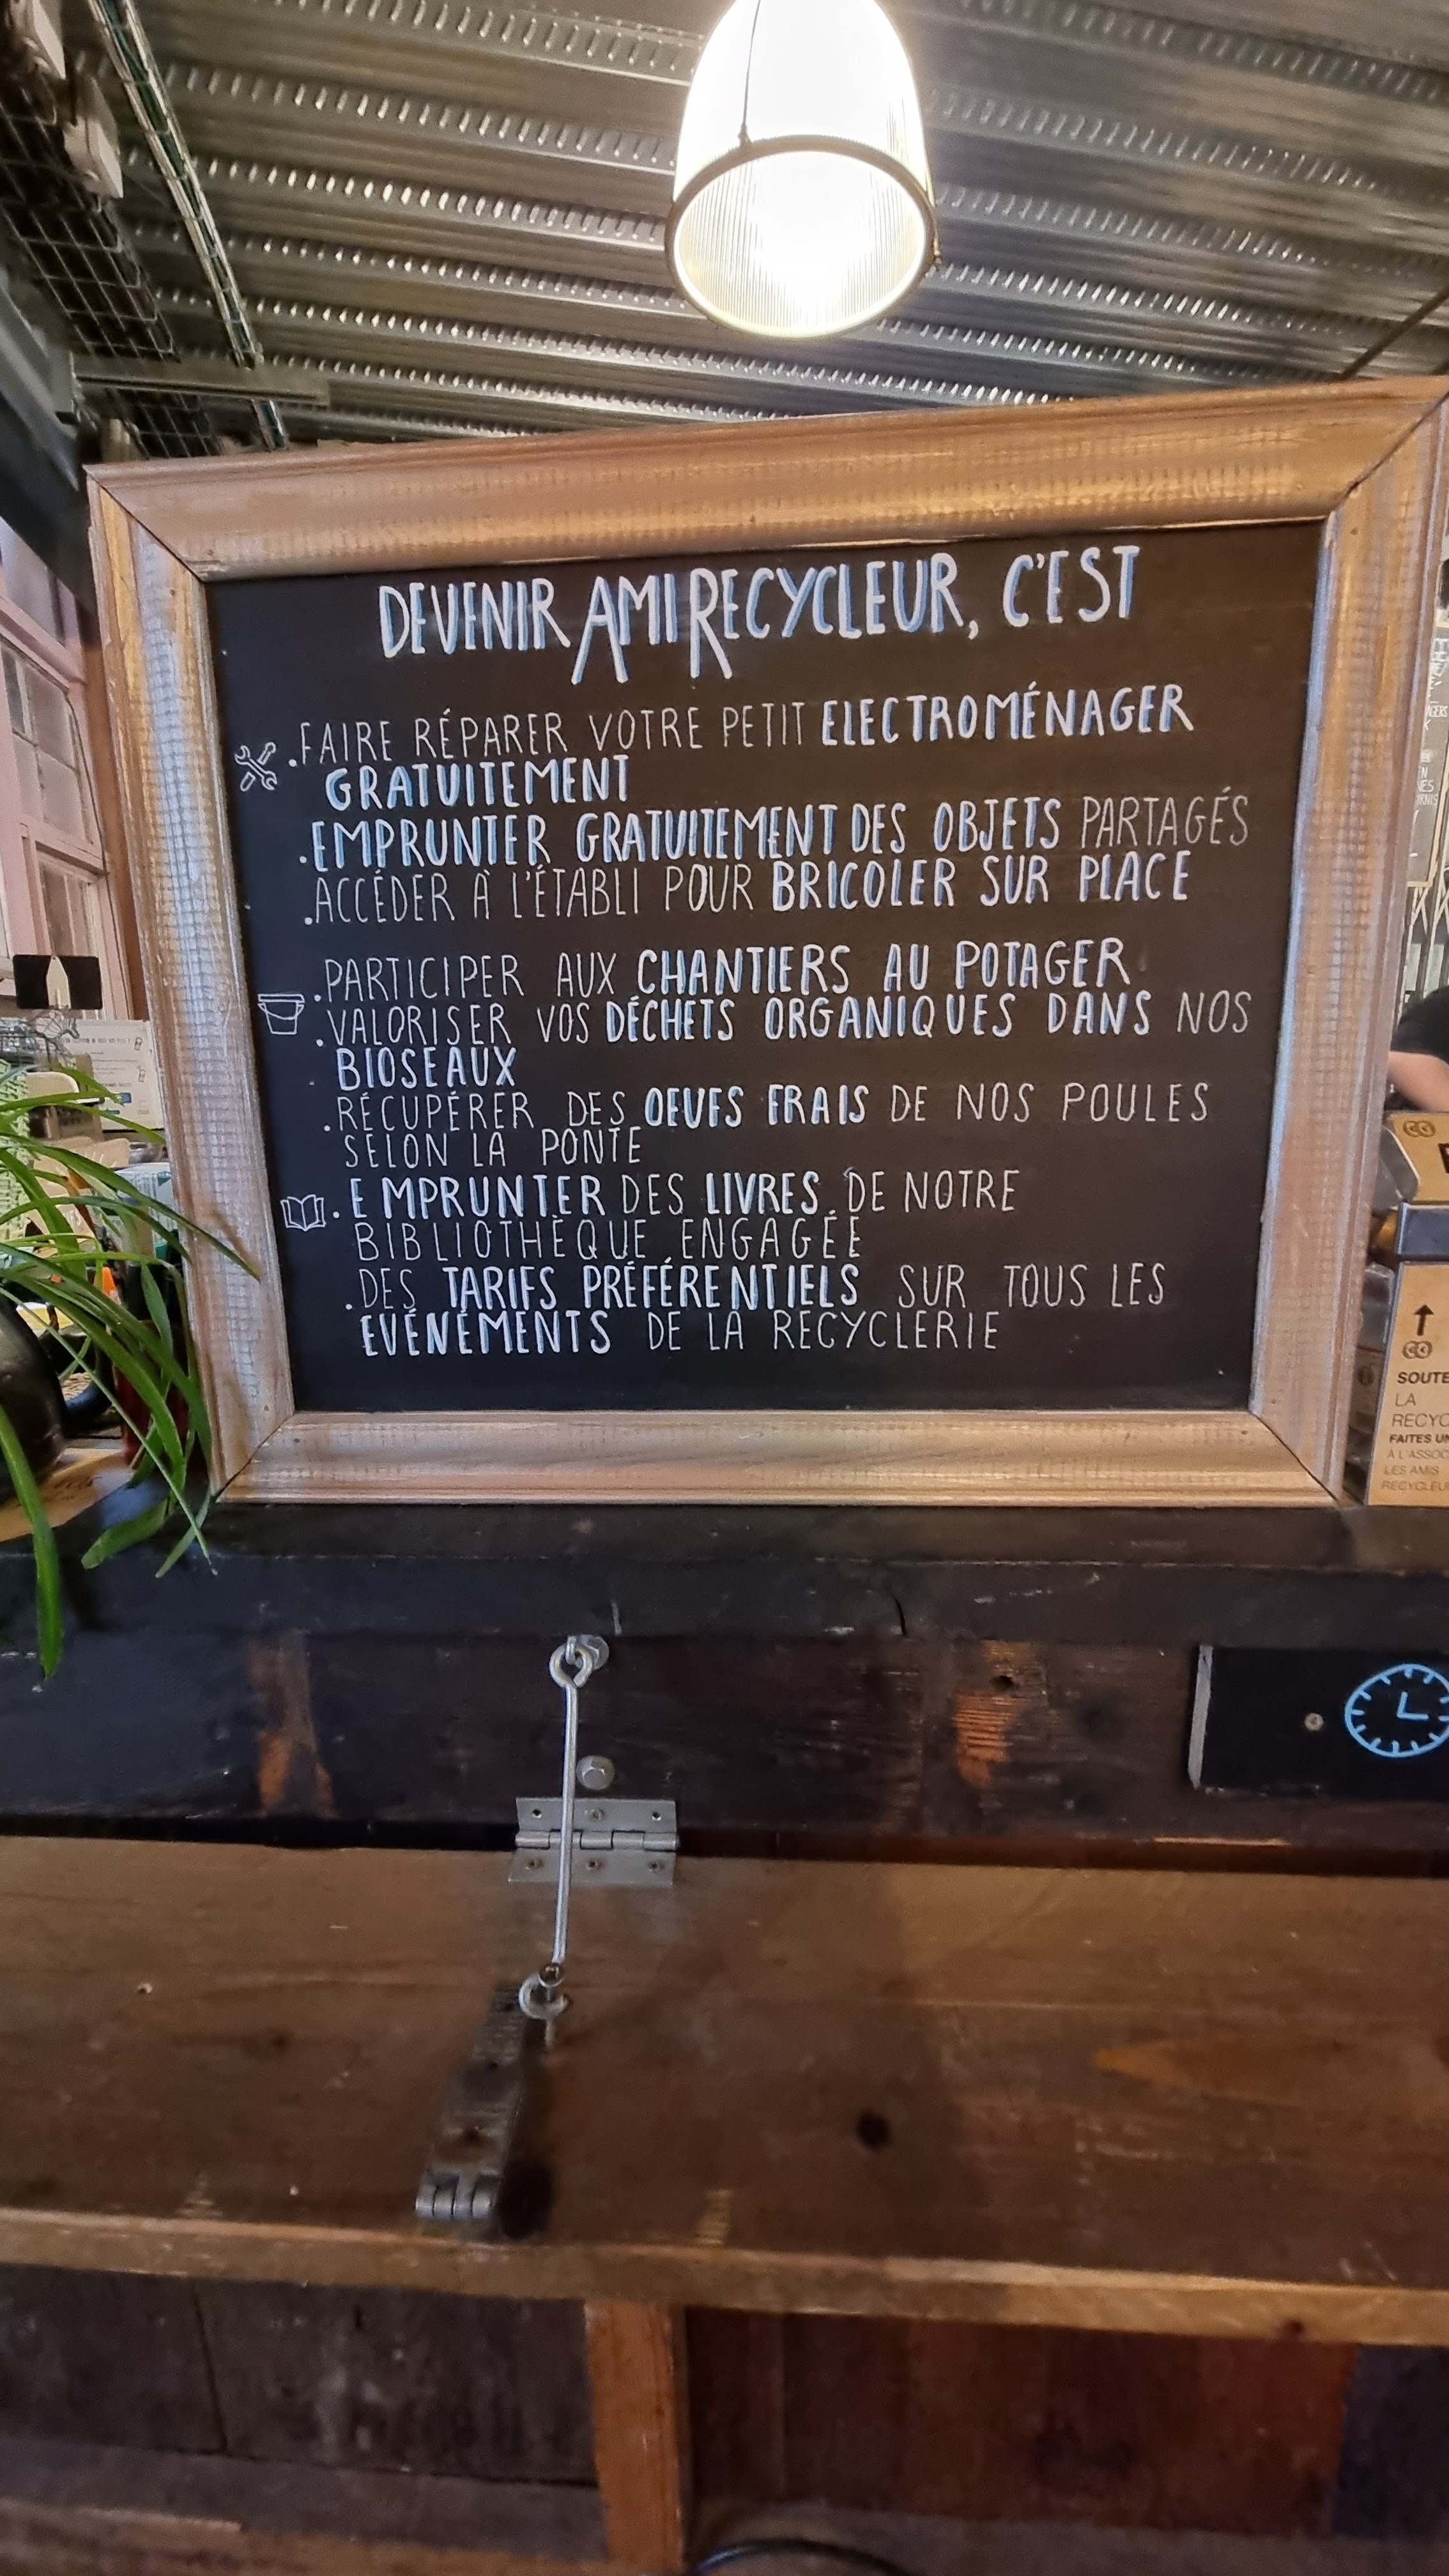 DEVENIR AMIRECYCLEUR, C'EST
.FAIRE RÉPARER VOTRE PETIT ELECTROMÉNAGER
GRATUITEMENT
.EMPRUNTER GRATUITEMENT DES OBJETS PARTAGÉS
.ACCÉDER À L'ÉTABLI POUR BRICOLER SUR PLACE
.PARTICIPER AUX CHANTIERS AU POTAGER
.VALORISER VOS DÉCHETS ORGANIQUES DANS NOS
BIOSEAUX
.RÉCUPÉRER DES OEUFS FRAIS DE NOS POULES
SELON LA PONTE
.EMPRUNTER DES LIVRES DE NOTRE
BIBLIOTHÈQUE ENGAGÉE
.DES TARIFS PRÉFÉRENTIELS SUR TOUS LES
ÉVÉNEMENTS DE LA RECYCLERIE
SOUTE
LA
RECYC
FAITES UN
À L'ASSOC
LES AMIS
RECYCLEU